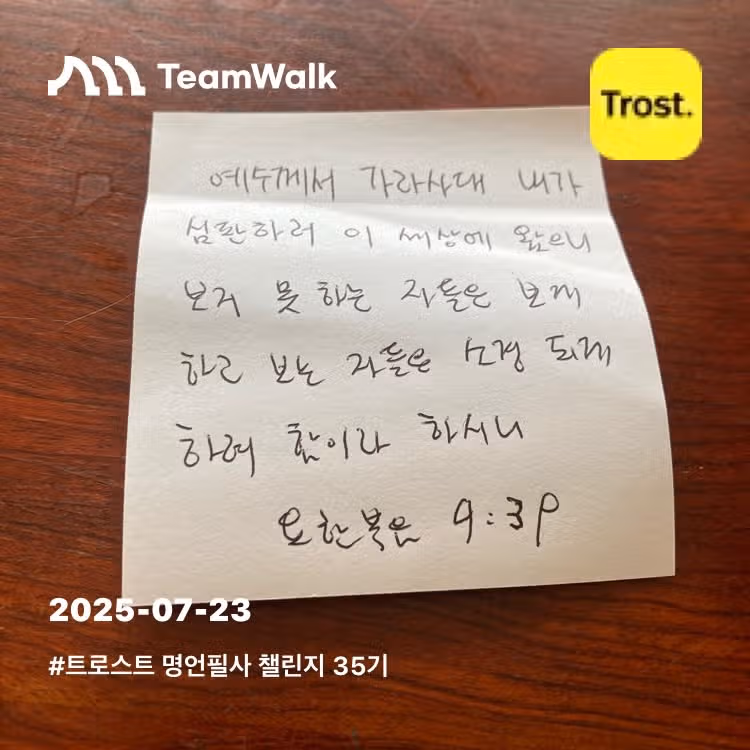 TeamWalk
Trost.
예수께서 가라사대 내가
심판하러 이 세상에 왔으니
보지 못 하는 자들은 보게
하고 보는 자들은 소경 되게
하려 함이라 하시니
요한복음 9:39
2025-07-23
#트로스트 명언필사 챌린지 35기